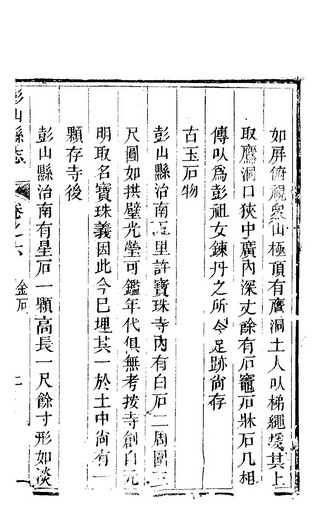 如屏俯視衆山極頂有鷹洞土人以梯繩援其上
取鷹洞口狹中廣內深丈餘有石竈石牀石几相
傳以爲彭祖女鍊丹之所今足跡尙存
古玉石物
彭山縣治南五里許寶珠寺內有白石二周圍三
尺圓如拱璧光瑩可鑑年代俱無考按寺創自元
明取名寶珠義因此今已埋其一於土中尙有一
顆存寺後
彭山縣治南有星石一顆高長一尺餘寸形如淡
彭山縣志
卷之六
金石
二